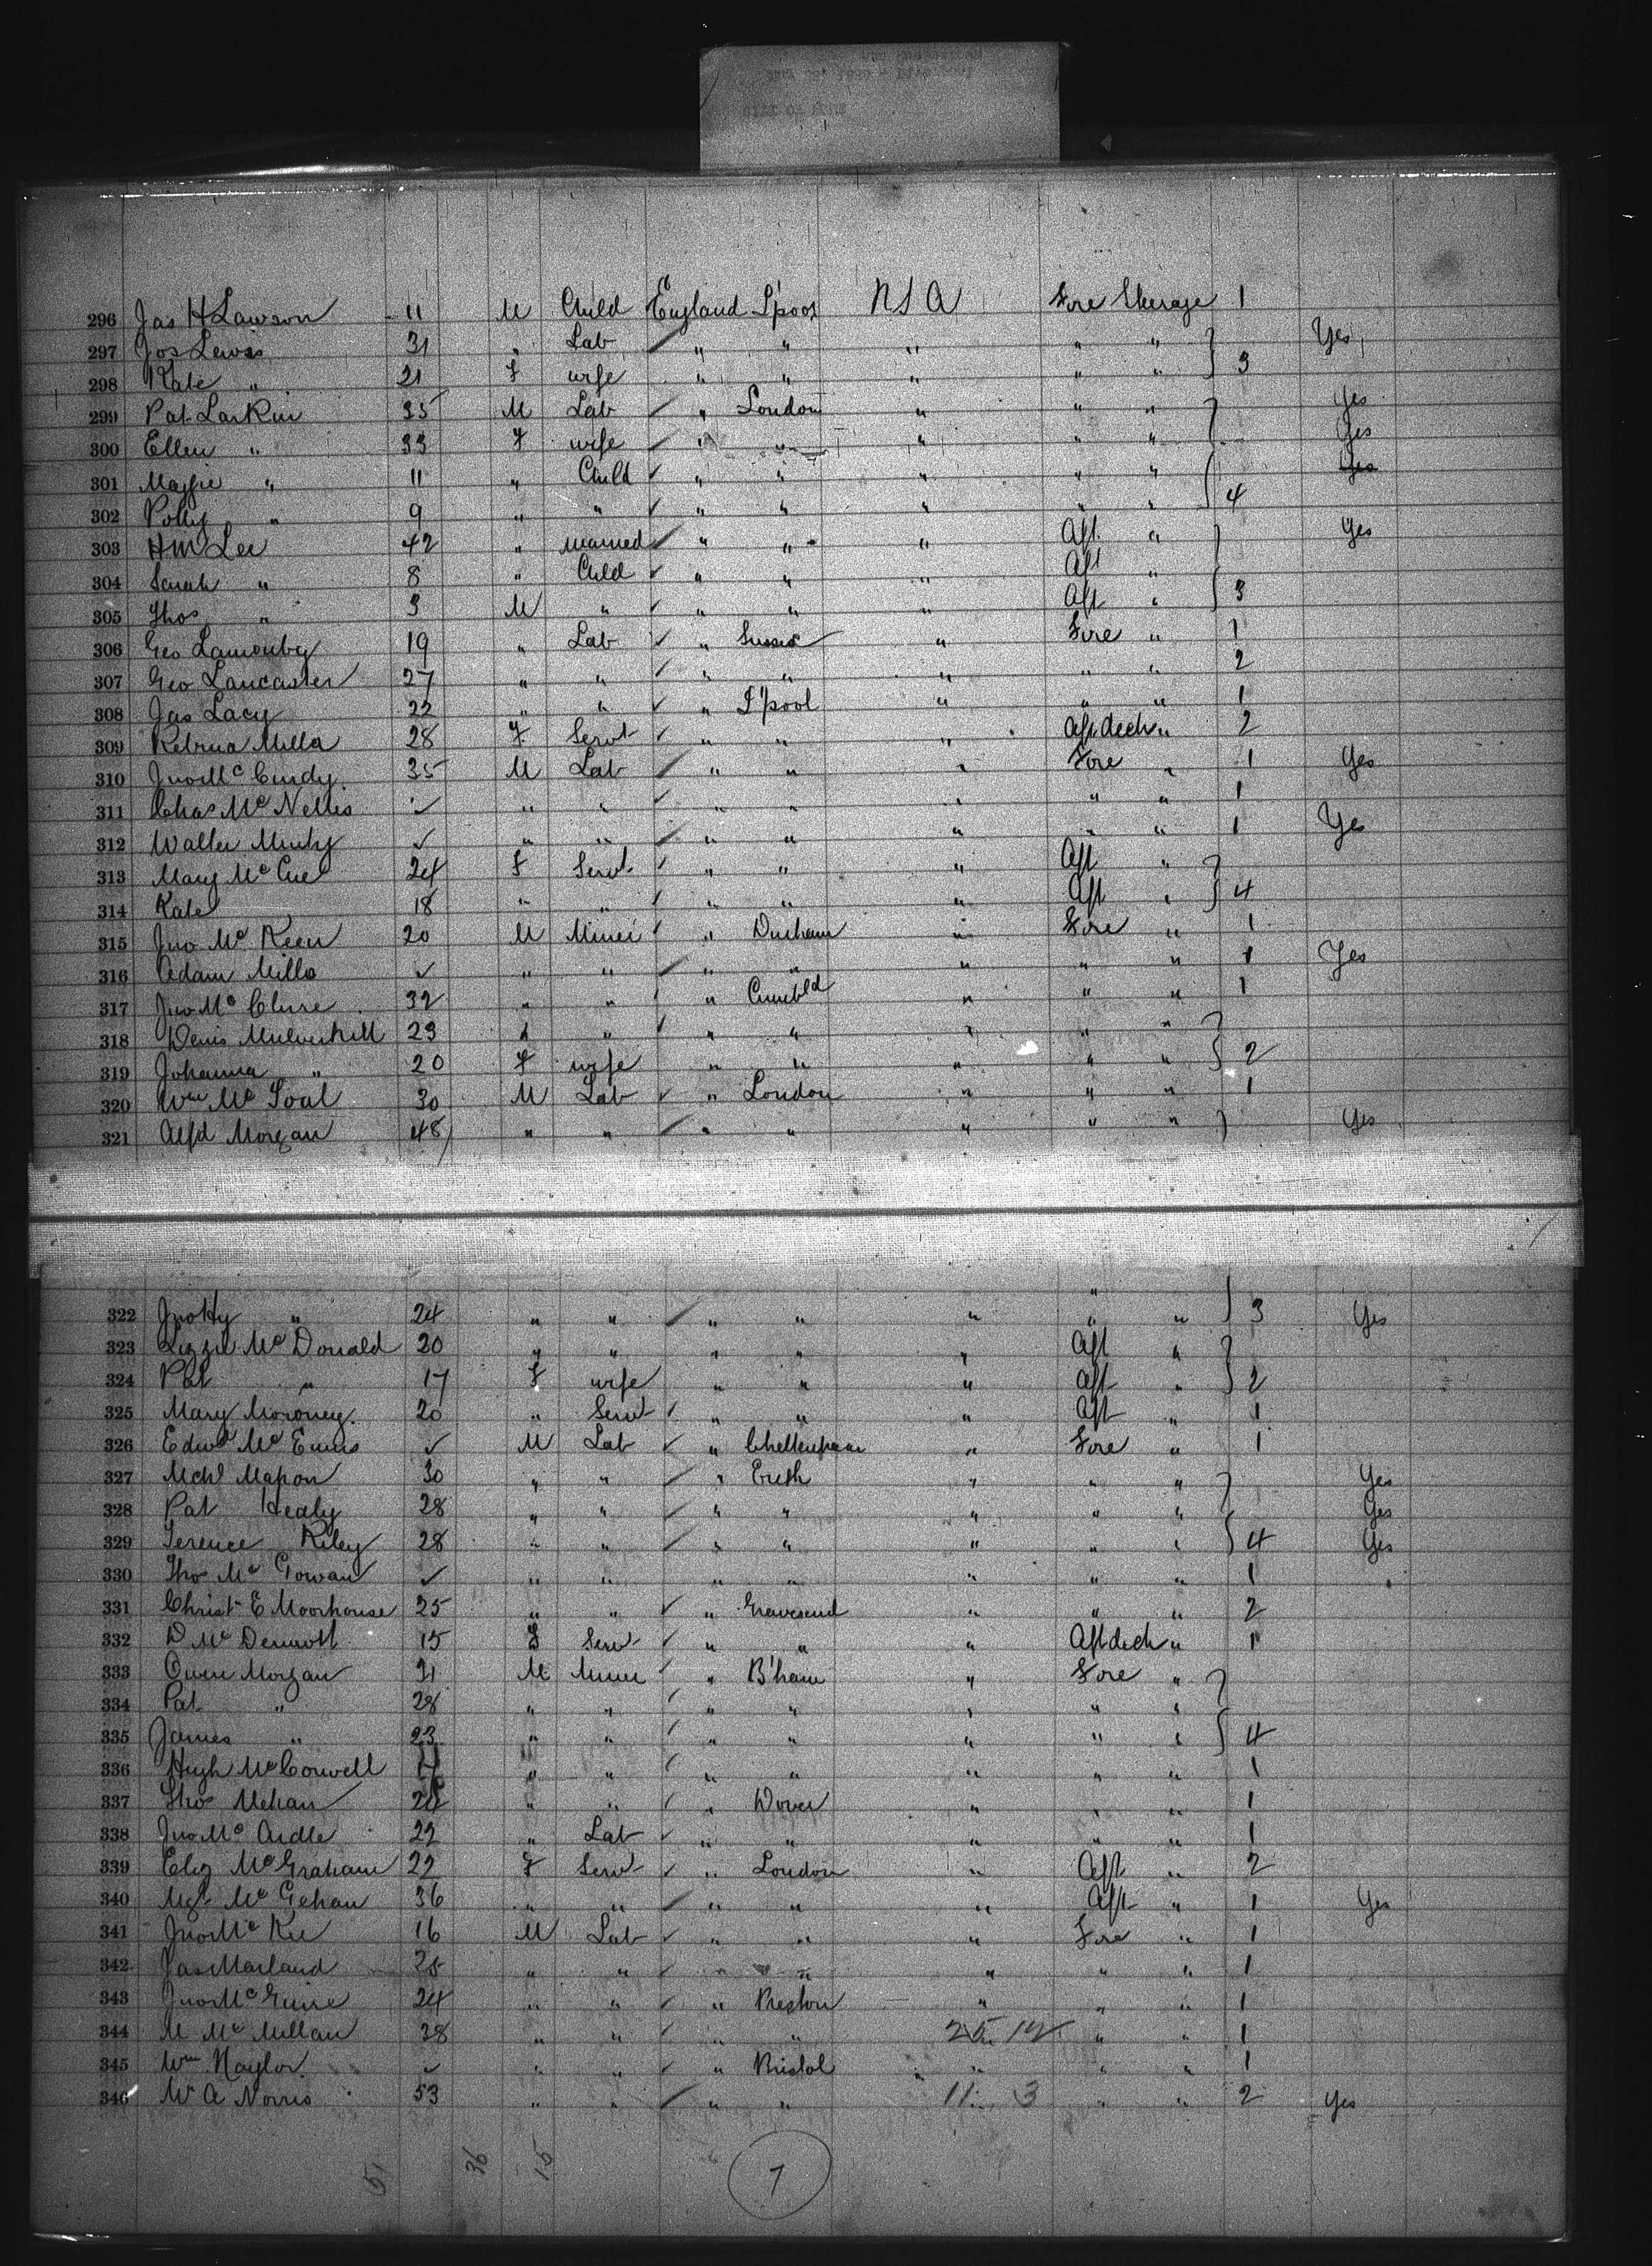 296 Jas H Lawson 11 M Child England L'pool N S A Fore Steerage 1
297 Jos Lewis 31 " Lab " " " " " Yes
298 Kate " 21 F wife " " " " " 3
299 Pat Larkin 35 M Lab " London " " " Yes
300 Ellen " 33 F wife " " " " " Yes
301 Maggie " 11 " Child " " " " " Yes
302 Polly " 9 " " " " " " " 4
303 H M Lee 42 " married " " " Aft " Yes
304 Sarah " 8 " Child " " " Aft "
305 Thos " 3 M " " " " Aft " 3
306 Geo Lamonby 19 " Lab " Sussex " Fore " 1
307 Geo Lancaster 27 " " " " " " " 2
308 Jas Lacy 22 " " " L'pool " " " 1
309 28 F Servt " " " Aft deck " 2
310 Jno Mc Curdy 35 M Lab " " " Fore " 1 Yes
311 Chas Mc Nellis ✓ " " " " " " " 1
312 Walter ✓ " " " " " " " 1 Yes
313 Mary Mc Cue 24 F Servt " " " Aft "
314 Kate 18 " " " " " Aft " 4
315 Jno Mc Keen 20 M Miner " Durham " Fore " 1
316 Adam Mills ✓ " " " " " " " 1 Yes
317 Jno Mc Clure 32 " " " Cumbld " " " 1
318 Denis Mulverhill 23 " " " " " " "
319 Johanna " 20 F wife " " " " " 2
320 Wm Mc 30 M Lab " London " " " 1
321 Alfd Morgan 48 " " " " " " " Yes
322 Jno Hy " 24 " " " " " " " 3 Yes
323 Lizzie Mc Donald 20 " " " " " Aft "
324 Pat " 17 F wife " " " Aft " 2
325 Mary Moroney 20 " Servt " " " Aft " 1
326 Edwd Mc ✓ M Lab " Cheltenham " Fore " 1
327 Mchl Mahon 30 " " " Erith " " " Yes
328 Pat Healy 28 " " " " " " " Yes
329 Terence Riley 28 " " " " " " " 4 Yes
330 Thos Mc Gowan ✓ " " " " " " " 1
331 Christ E Moorhouse 25 " " " Gravesend " " " 2
332 D Mc Dermott 15 F Servt " " " Aft deck " 1
333 Owen Morgan 31 M Miner " B'ham " Fore "
334 Pat " 28 " " " " " " "
335 James " 23 " " " " " " " 4
336 Hugh Mc Conwell 17 " " " " " " " 1
337 Thos Mehan " " " Dover " " " 1
338 Jno Mc Ardle 22 " Lab " " " " " 1
339 Eliz Mc Graham 22 F Servt " London " Aft " 2
340 Mgt Mc Gehan 36 " " " " " Aft " 1 Yes
341 Jno Mc Kee 16 M Lab " " " Fore " 1
342 Jas Marland 25 " " " " " " " 1
343 Jno Mc Guire 24 " " " Preston " " " 1
344 M Mc Millan 38 " " " " 25 12 " " 1
345 Wm Naylor ✓ " " " Bristol " " " 1
346 W A Norris 53 " " " " 11 3 " " 2 Yes
51 36 15
7